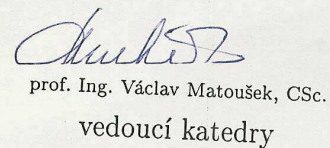 prof. Ing. Václav Matoušek, CSc.
vedoucí katedry